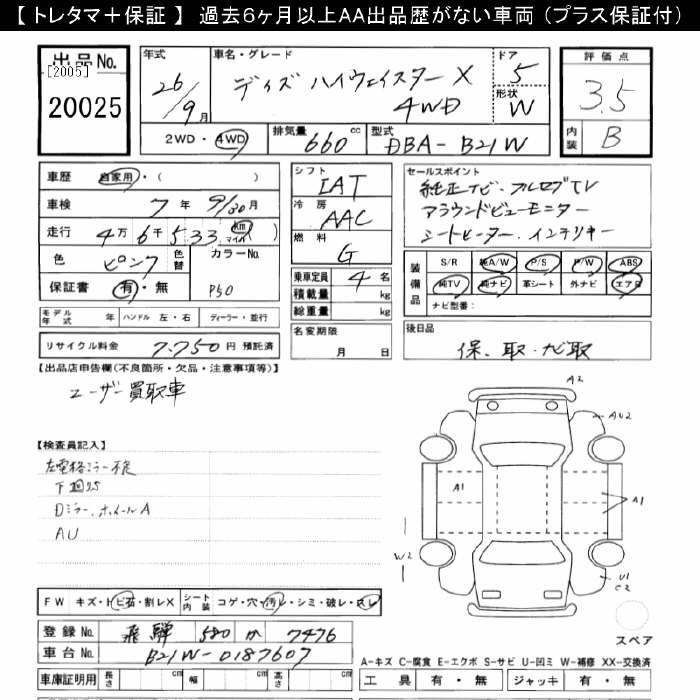 【 トレタマ＋保証 】 過去6ヶ月以上AA出品歴がない車両（プラス保証付）
出品No.
[2005]
20025
年式
26/9月
車名・グレード
デイズ ハイウェイスター X
4WD
ドア
5
形状
W
評価点
3.5
内装
B
2WD・4WD
排気量
660 cc
型式
DBA-B21W
車歴
自家用・( )
車検
7年 9/30月
走行
4万6千533 (km マイル)
色
ピンク
色替
カラーNo.
P50
保証書
有・無
モデル年式
年
ハンドル 左・右
ディーラー・並行
リサイクル料金
7.750円 預託済
シフト
IAT
冷房
AAC
燃料
G
乗車定員
4名
積載量
kg
総重量
kg
名変期限
月 日
セールスポイント
純正ナビ・フルセグTV
アラウンドビューモニター
シートヒーター. インテリキー
装備品
S/R 純A/W P/S P/W ABS
純TV 純ナビ 革シート 外ナビ エアB
ナビ型番:
後日品
保、取・ナビ取
【出品店申告欄(不良箇所・欠品・注意事項等)】
ユーザー買取車
【検査員記入】
左電格ミラー不良
下廻りS
Dミラー、ホイールA
AU
A2
AU2
A1
A1
W2
U1
C2
スペア
FW キズ・トビ石・割レX
シート内装 コゲ・穴・汚レ・シミ・破レ・スレ
登録No.
飛騨 580 か 7476
車台No.
B21W-0187607
車庫証明用
長さ cm
幅 cm
高さ cm
A-キズ C-腐食 E-エクボ S-サビ U-凹ミ W-補修 XX-交換済
工具 有・無
ジャッキ 有・無